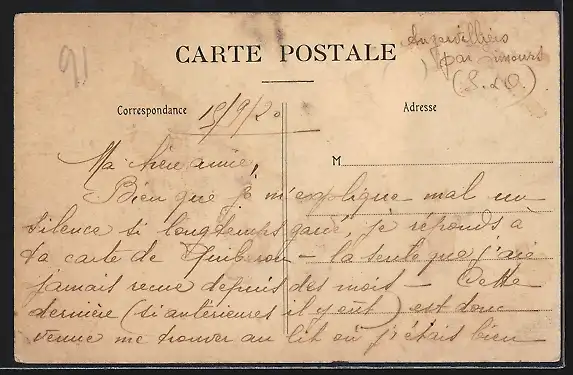 91
CARTE POSTALE
Angervilliers
par Limours
(S. et O.)
Correspondance
19/9/20
Adresse
M
Ma chère amie,
Bien que je m'explique mal un
silence si longtemps gardé, je réponds à
ta carte de Quiberon – la seule que j'aie
jamais reçue depuis des mois – Cette
dernière (si antérieures il y eut) est donc
venue me trouver au lit où j'étais bien